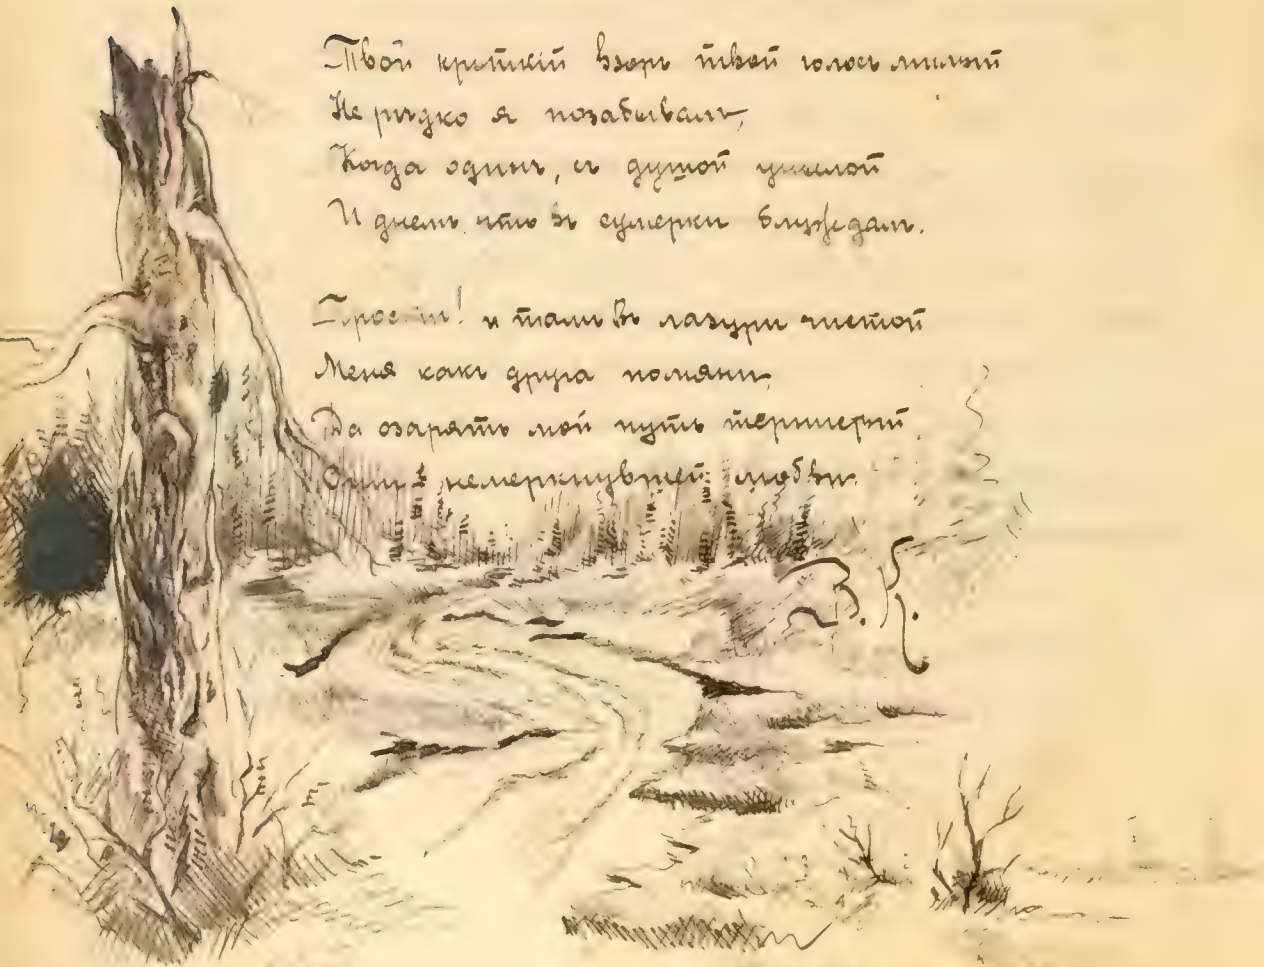 Твой кроткій взоръ твой голосъ милый
Не рѣдко я позабывалъ,
Когда одинъ, съ душой унылой
И днемъ что въ сумерки блуждалъ.
Прости! и тамъ въ лазури чистой
Меня какъ друга помяни,
Да озарятъ мой путь тернистый
немеркнувшей любви.
З. К.